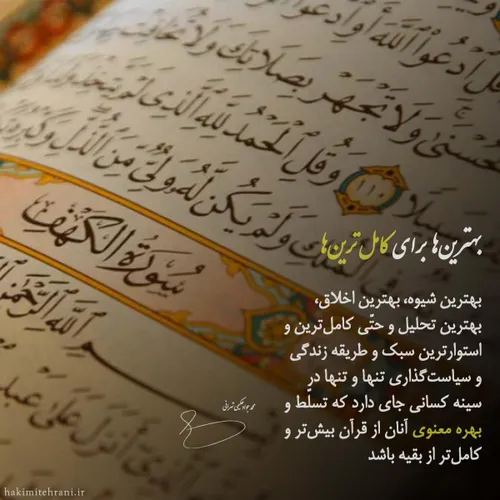 قُلِ ادْعُوا اللَّهَ أَوِ ادْعُوا
الْحُسْنَىٰ وَلَا تَجْهَرْ بِصَلَاتِكَ وَلَا تُخَافِتْ
سَبِيلًا ١١٠ وَقُلِ الْحَمْدُ لِلَّهِ الَّذِي لَمْ يَتَّخِذْ وَلَدًا
الْمُلْكِ وَلَمْ يَكُن لَّهُ وَلِيٌّ مِّنَ الذُّلِّ وَكَبِّرْهُ
سُورَةُ الْكَهْفِ
بِسْمِ اللَّهِ الرَّحْمَٰنِ
الَّذِي أَنزَلَ عَلَىٰ عَبْدِهِ
بهترین‌ها برای کامل‌ترین‌ها
بهترین شیوه، بهترین اخلاق،
بهترین تحلیل و حتّی کامل‌ترین و
استوارترین سبک و طریقه زندگی
و سیاست‌گذاری تنها و تنها در
سینه کسانی جای دارد که تسلّط و
بهره معنوی آنان از قرآن بیش‌تر و
کامل‌تر از بقیه باشد
محمد جواد حکیمی تهرانی
hakimitehrani.ir